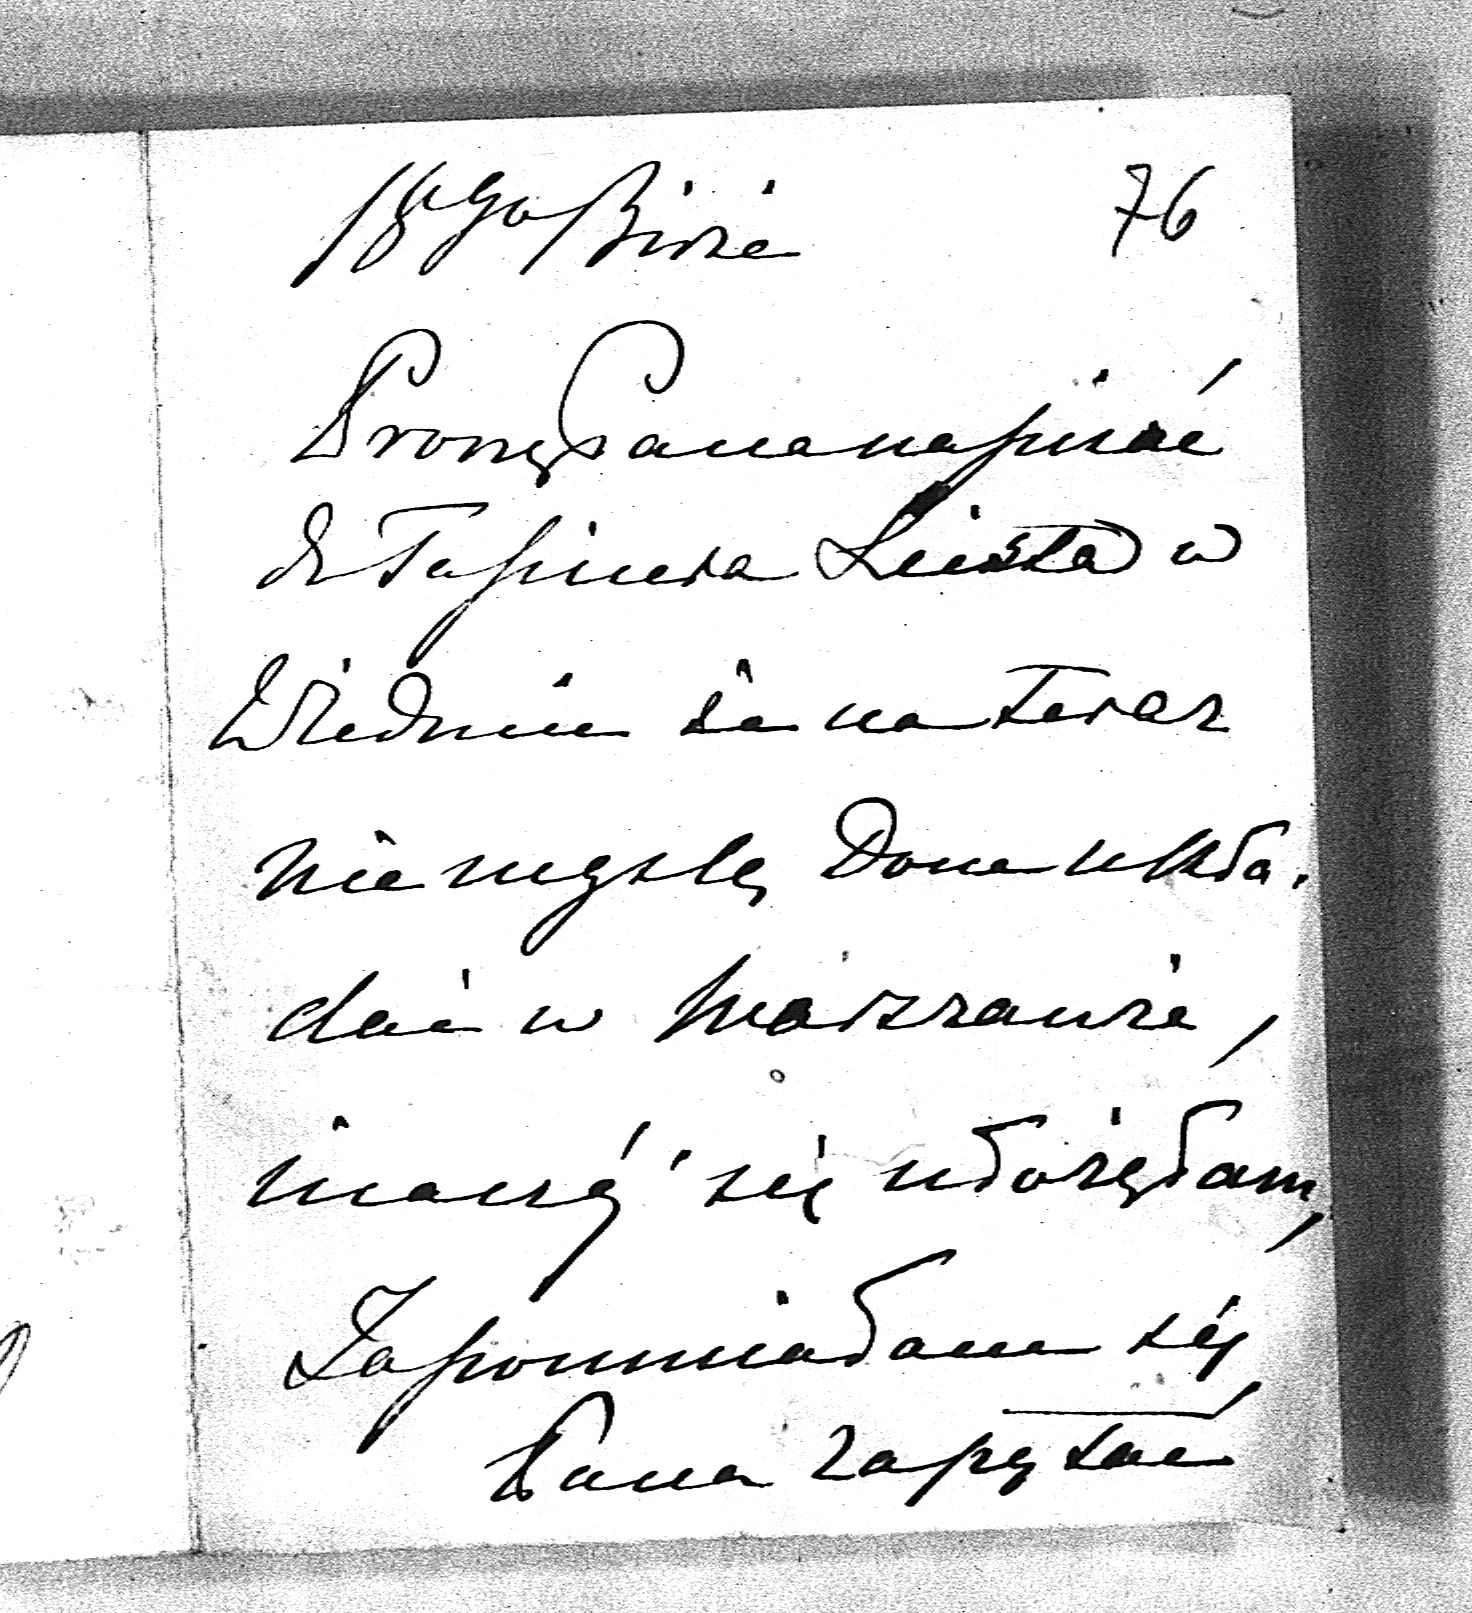 18go Birże 76
Proszę Pana napisać
do Tapicera Lista w
Wiedniu że na teraz
nie myślę Domu ukła-
dać w Warszawie,
inaczéj się ułożyłam,
Zapomniałam się
Pana zapytać